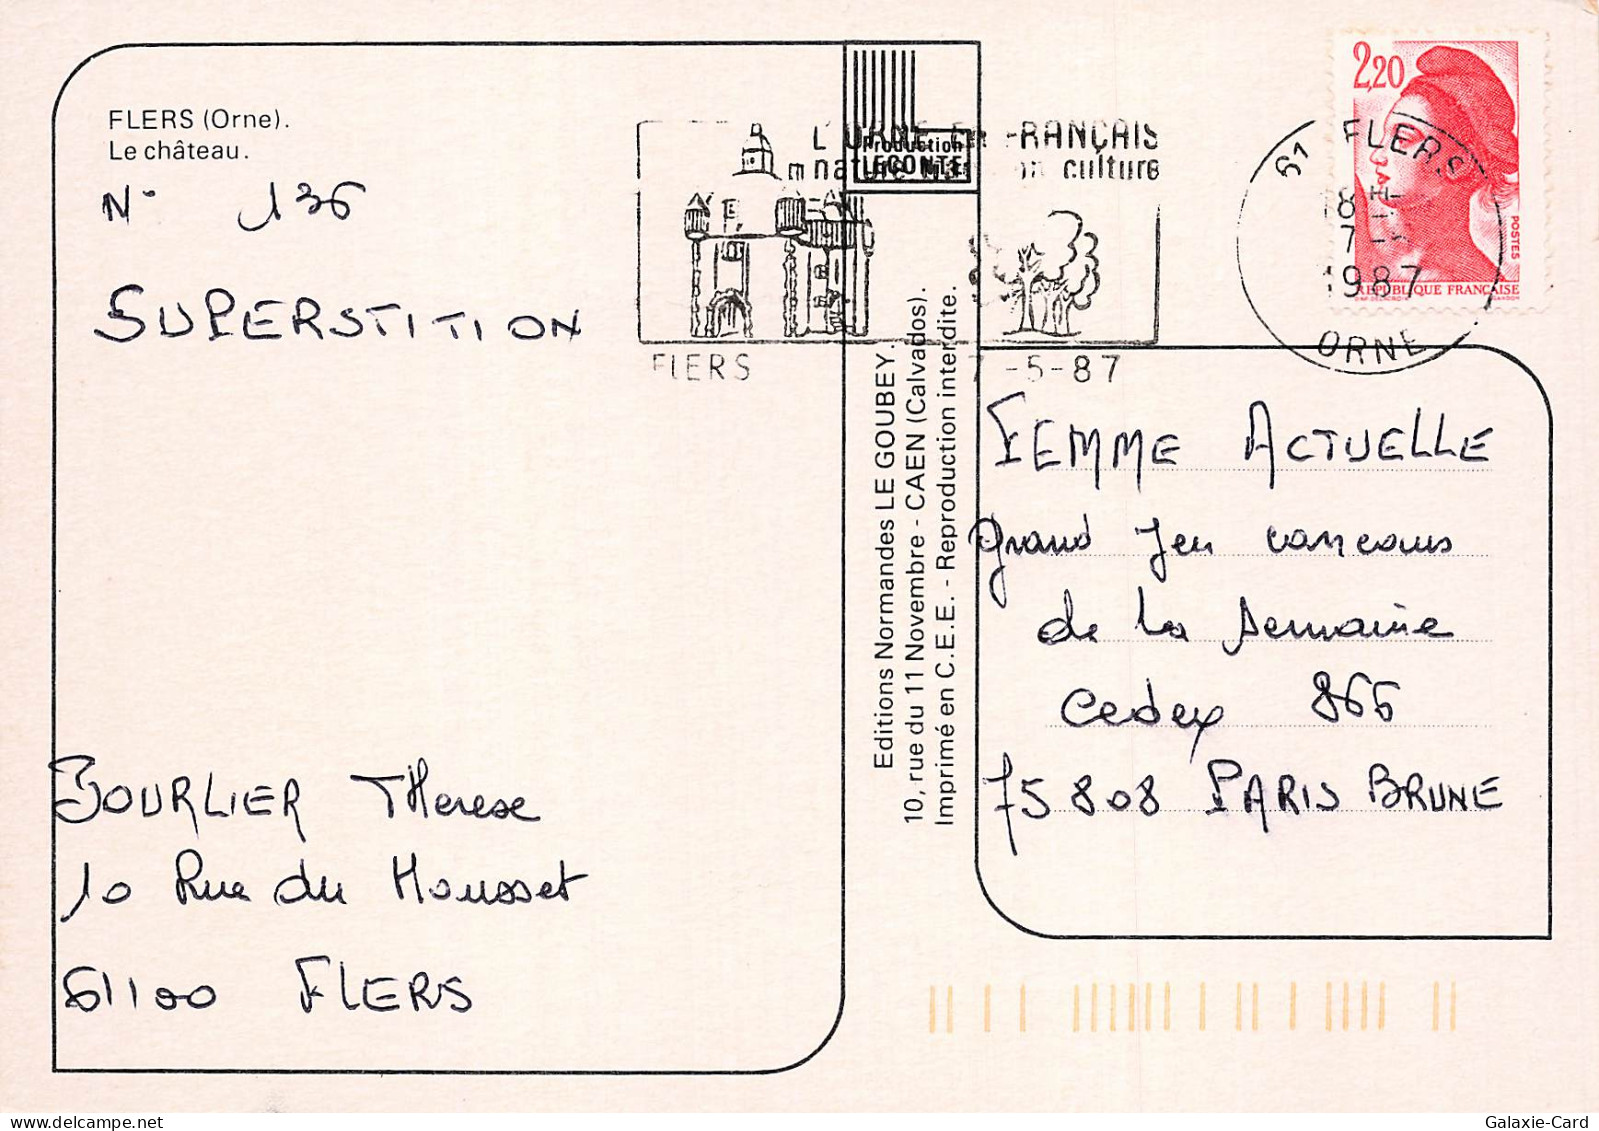 FLERS (Orne).
Le château.
N° 136
SUPERSTITION
BOURLIER THerese
10 Rue du Housset
61100 FLERS
Production
LECONTE
L'ORNE EN FRANÇAIS
nature culture
FLERS 7-5-87
Editions Normandes LE GOUBEY.
10, rue du 11 Novembre - CAEN (Calvados).
Imprimé en C.E.E. - Reproduction interdite.
2,20
POSTES
REPUBLIQUE FRANÇAISE
61 FLERS
18 H
7 -
1987
ORNE
FEMME ACTUELLE
Grand Jeu concours
de la semaine
cedex 866
75808 PARIS BRUNE
Galaxie-Card